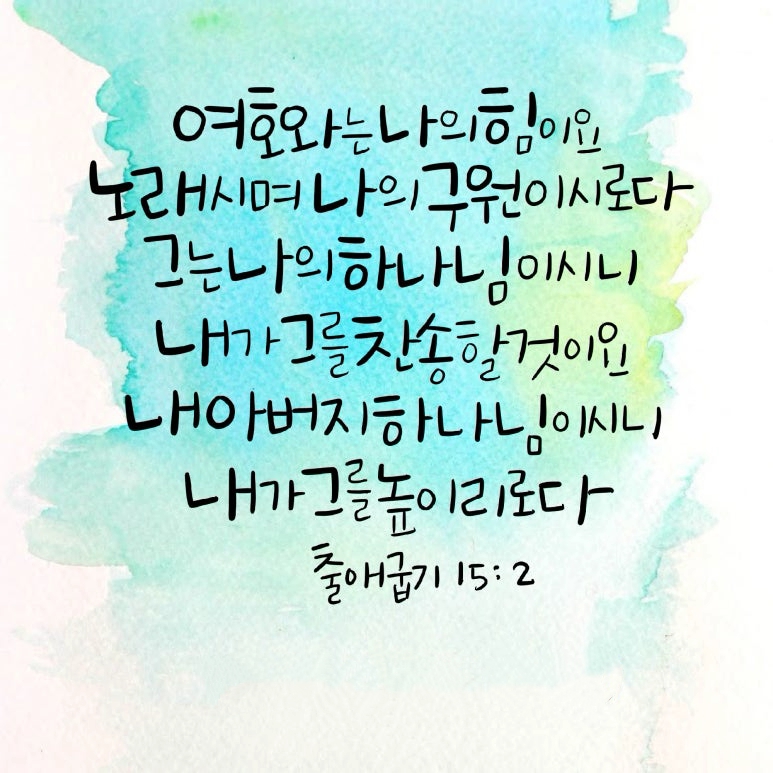 여호와는 나의 힘이요
노래시며 나의 구원이시로다
그는 나의 하나님이시니
내가 그를 찬송할 것이요
내 아버지 하나님이시니
내가 그를 높이리로다
출애굽기 15:2